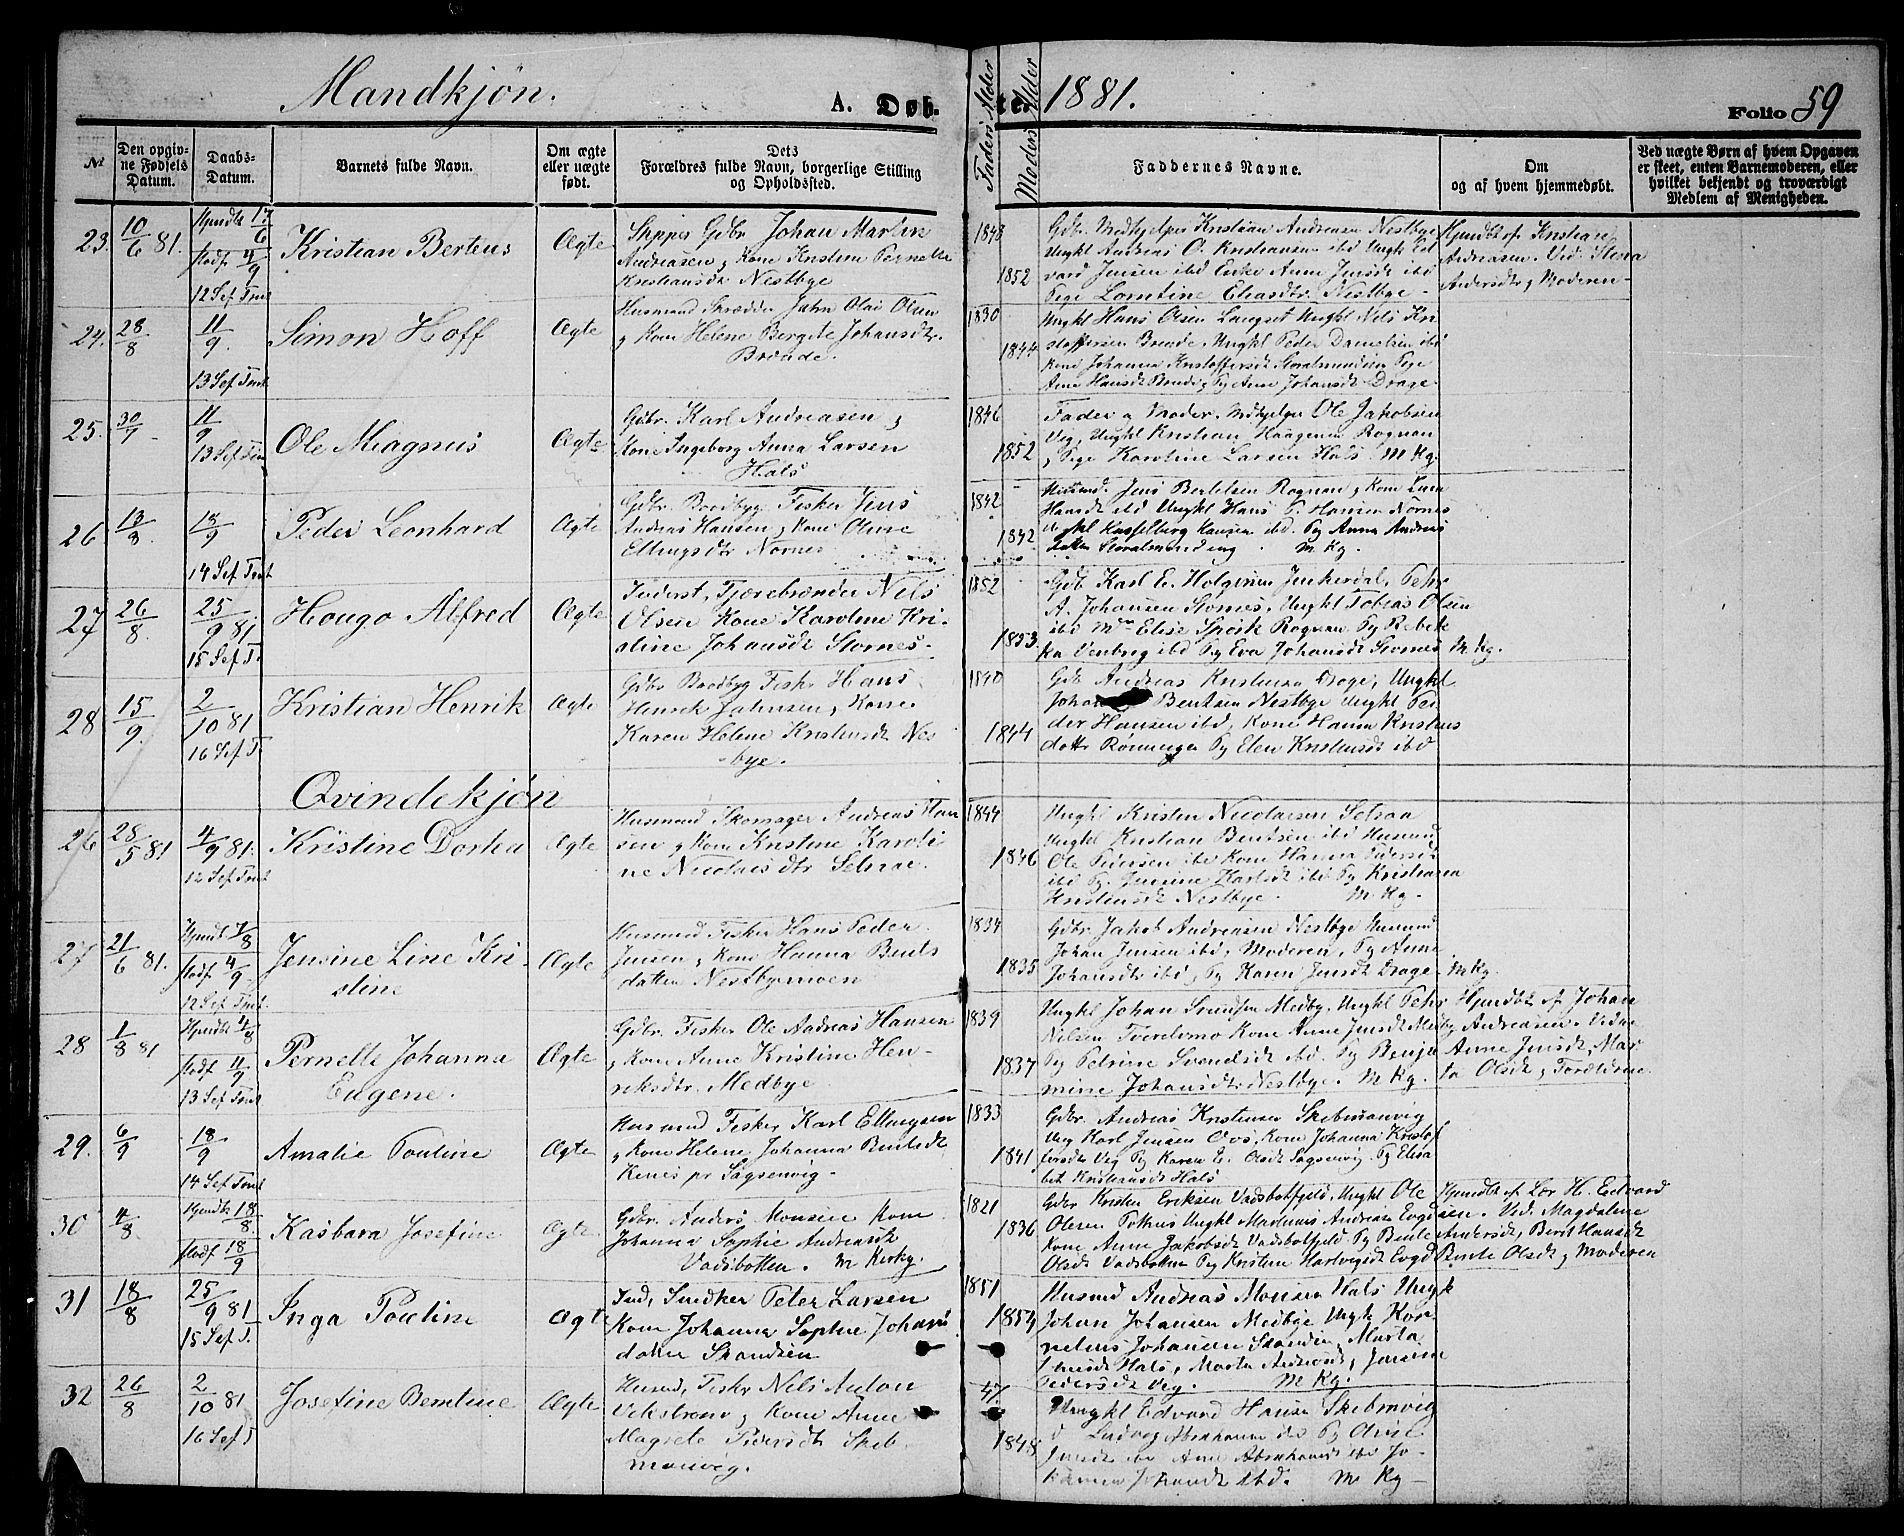 Mandkjøn.
A. Døb-
te. 1881.
Folio 59
№
Den opgiv-
ne Fødsels
Datum.
Daabs-
Datum.
Barnets fulde Navn.
Om ægte
eller uægte
født.
Dets
Forældres fulde Navn, borgerlige Stilling
og Opholdssted.
Faders Alder
Moders Alder
Faddernes Navne.
Om
og af hvem hjemmedøbt.
Ved uægte Børn af hvem Opgaven
er skeet, enten Barnemoderen, eller
hvilket bekjendt og troværdigt
Medlem af Menigheden.
23. 10/6 81. Hjmdbt 17/6 Stadf. 4/9 12 Sef. Trint
Kristian Berteus
Ægte
Gdbr. Johan Martin
Andreasen & Kone Kristine Pernelle
Kristiansdt Nestbye
1848
1852
Gdbr. Medhjelper Kristian Andreasen Nestbye
Ungkl Andreas O. Kristiansen ibd Ungkl Ed
vard Jensen ibd Enke Anne Jensdt ibd
Pige Lorntine Eliasdtr. Nestbye -
Hjmdbt af Kristian
Andreasen. Vid. Stina
Andersdtr & Moderen -
24. 28/8 11/9. 13 Sef. Trint
Simon Hoff
Ægte
Husmand Skrædder Jahn Olai Olsen
& Kone Helene Bergite Johansdtr.
Brænde.
1830
1844
Ungkl Hans Olsen Langset Ungkl Nils Kri
stoffersen Brende, Ungkl Peder Danielsen ibd
Kone Johanna Kristoffersdt Storalmundsen Pige
Ane Hansdt Brende, Pg Anne Johansdt Drage
25. 30/7 - 11/9 13 Sef. Trin
Ole Magnus
Ægte
Gdbr. Karl Andreasen &
Kone Ingeborg Anna Larsen
Hals
1846
1852
Fader & Moder. Medhjelper Ole Jakobsen
Veg, Ungkl Kristian Haagensen Rognan
& Pige Karoline Larsen Hals M Kg.
26 13/8. 18/9 14 Sef. Trint
Peder Leonhard
Ægte
Gdbr. Baadbyg Fisker Jens
Andreas Hansen & Kone Oline
Ellingsdtr Nornes
1842
1842
Husmd. Jens Bertelsen Rognan & Kone Lina
Hansdt ibd Ungkl Hans P. Hansen Nornes
Ungkl Hasselberg Hansen ibd. Pg Anna Andreas
datter Storalmunding. M Kg.
27 26/8. 25/9 81 15 Sef. T.
Haugo Alfred
Ægte
Inderst, Tjærebrænder Nels
Olsen Kone Karoline Kri-
stine Johansdt Stornes -
1852
1853
Gdb Karl E. Holgersen Junkerdal, Pehr
A. Johansen Stornes, Ungkl Tobias Olsen
ibd Elise Spørk Rognan Pg Rebek
ka Venbrig ibd Pg Eva Johansdt Stornes M Kg.
28 15/9. 2/10 81 16 Sef. T
Kristian Henrik
Ægte
Gdbr Baadbyg Fisker Hans
Henrik Jahnsen & Kone
Karen Helene Kristensdt Nes
bye.
1840
1844
Gdb Andreas Kristensen Drage, Ungkl
Johan Bentsen Nestbye Ungkl Pe
der Hansen ibd, Kone Hanna Kristens
datter Rønningen Pg Elen Kristensdt ibd
Qvindekjøn
26 28/5 81 4/9 81. 12 Sef. Trint
Kristine Dortea
Ægte
Husmand Skomager Andreas Han
sen & Kone Kristine Karoli
ne Nicolaisdtr Setraa.
1844
1846
Ungkl Kristen Nicolaisen Setraa
Ungkl Kristian Bentsen ibd Husmd
Ole Pedersen ibd Kone Hanna Pedersdt
ibd Pg. Jensine Karlsdt ibd Pg Kristianna
Kristensdt Nestbye. M Kg.
27 21/6 81. Hjmdbt 7/8 Stadf. 4/9. 12 Sef. Trint.
Jensine Line Kri-
stine
Ægte
Husmand Fisker Hans Peder
Jensen & Kone Hanna Bents
datter Nestbymoen
1834
1835
Gdbr. Jakob Andreasen Nestbye Husmd
Johan Jensen ibd, Moderen, Pg Anne
Johansdtr ibd, Pg Karen Jensdt Drage. M Kg.
28 1/8 81 Hjmdbt 7/8 Stadf. 11/9 13 Sef. Trint
Pernelle Johanna
Eugene.
Ægte
Gdbr. Fisker Ole Andreas Hansen
& Kone Anne Kristine Hen-
reksdtr. Medbye
1839
1837
Ungkl Johan Medby, Ungkl Pehr
Nilsen Tverelvmo Kone Anne Jensdt Medby
Pg Petrine Svendsdt ibd. Pg Benja
mine Johansdtr Nestbye. M Kg.
Hjmdbt af Johan
Andreasen. Vidne
Anne Jensdt, Mar
ta Olsdt & Forældrene
29. 6/9 18/9 14 Sef. Trint
Amalie Pauline
Ægte
Husmand Fisker Karl Ellingsen
& Kone Helene Johanna Bentsdt
Kenes pr Sagsenvig -
1833
1841
Gdbr. Andreas Kristensen Skebmanvig
Ung Karl Jensen Ovs, Kone Johanna Kristof
fersdtr Veg Pg Karen E. Olsdt Sagsenvig, Pg Elisa
bet Kristensdt Hals
30 4/8 Hjmdbt 18/8 Stadf. 18/9
Kasbara Josefine
Ægte
Gdbr. Anders Monsen Kone
Johanna Sophie Andreasdt
Vadsbotten. M Kirkg.
1821
1836
Gdbr Kristen Eriksen Vadsbotfjeld, Ungkl Ole
Olsen Pothus Ungkl Martinus Andreasen Evgd
Kone Anne Jakobsdt Vadsbotfjeld Pg Bente
Olsdt Vadsbotten Pg Kristine Hartvigsdt Evgd
Hjmdbt af Lær H. Edvard
sen. Vid. Magdaline
Andersdt, Berit Hansdt
Bente Olsdt & Moderen
31 18/8 25/9 81 15 Sef. T.
Inga Pauline
Ægte
Ind, Snedker Peter Larsen
Kone Johanna Sophie Johans
datter Skandsen
1851
1854
Husmd Andreas Monsen Hals Ungk
Johan Johansen Medbye Ungk Kor
nelius Johansen Skandsen, Marta
Jensdt Hals, Marta Andreasdt, Jensine
Pedersdt Veg. M Kg.
32 26/8 2/10 81 16 Sef. T
Josefine Berntine
Ægte
Husmd, Fisker Nils Anton
Vikstrøm & Kone Anne
Magrete Pedersdt Skeb
manvig.
47.
1848
Ungkl Edvard Hansen Skebmvig
Ludvig Abrahamsen ibd Pg Oline
Jensdt ibd Ane Abrahamsdt ibd Jo
hanna Johansdt ibd. M Kg -